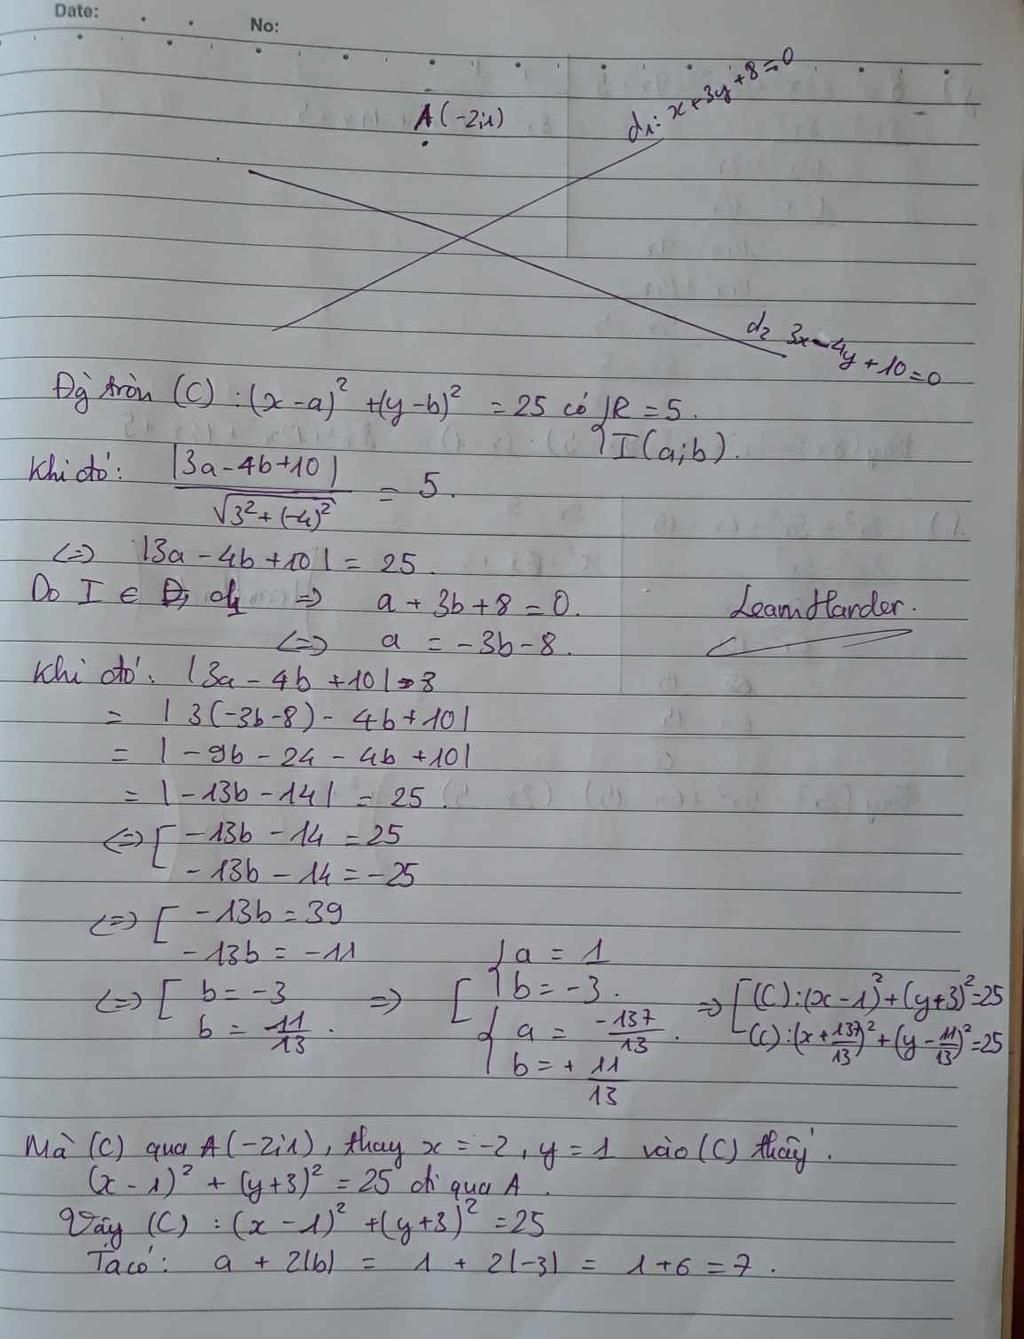 Date:
No:
A(-2;1)
d₁: x+3y+8=0
d₂ 3x-4y+10=0
Đg tròn (C) : (x-a)² + (y-b)² = 25 có { R = 5.
I(a;b).
Khi đó: |3a-4b+10| / √3²+(-4)² = 5.
<=> |3a - 4b + 10| = 25.
Do I ∈ d₁ => a + 3b + 8 = 0.
LearnHarder.
<=> a = -3b - 8.
Khi đó: |3a - 4b + 10|
= | 3(-3b-8) - 4b + 10|
= | -9b - 24 - 4b + 10|
= |-13b - 14| = 25.
<=> [ -13b - 14 = 25
-13b - 14 = -25
<=> [ -13b = 39
-13b = -11
<=> [ b = -3 => [ { a = 1
b = 11/13. { b = -3.
{ a = -137/13.
b = + 11/13
=> [ (C): (x-1)² + (y+3)² = 25
(C): (x+137/13)² + (y-11/13)² = 25
Mà (C) qua A(-2;1), thay x = -2, y = 1 vào (C) thấy.
(x-1)² + (y+3)² = 25 đi qua A.
Vậy (C) : (x-1)² + (y+3)² = 25
Ta có: a + 2|b| = 1 + 2|-3| = 1+6 = 7.